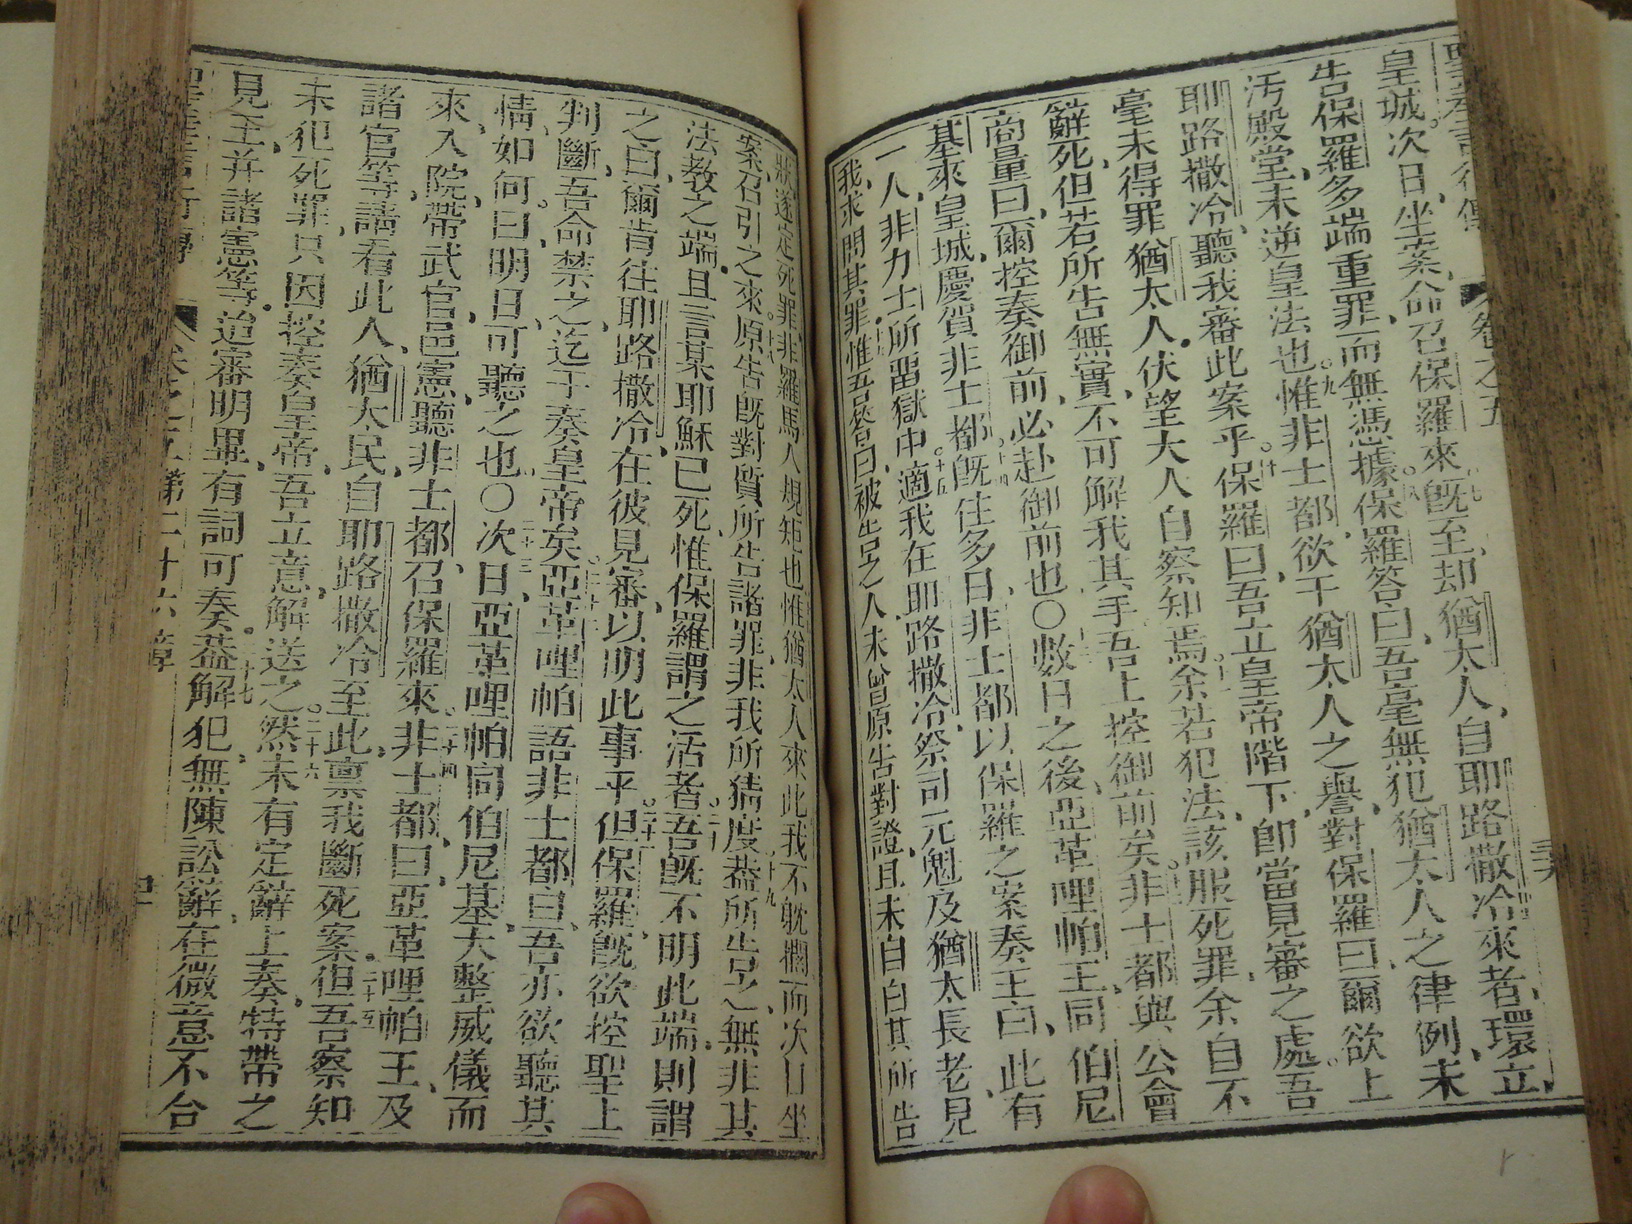 皇城次日坐案命召保羅來既至却猶太人自耶路撒冷來者環立
告保羅多端重罪而無憑據保羅答曰吾毫無犯猶太人之律例未
汚殿堂未逆皇法也惟非士都欲干猶太人之譽對保羅曰爾欲上
耶路撒冷聽我審此案乎保羅曰吾立皇帝階下卽當見審之處吾
毫未得罪猶太人伏望大人自察知焉余若犯法該服死罪余自不
辭死但若所告無實不可解我其手吾上控御前矣非士都與公會
商量曰爾控奏御前必赴御前也〇數日之後亞革哩帕王同伯尼
基來皇城慶賀非士都旣往多日非士都以保羅之案奏王曰此有
一人非力士所畱獄中適我在耶路撒冷祭司元魁及猶太長老見
我求問其罪惟吾答曰被告之人未曾原告對證且未自白其所告
狀遂定死罪非羅馬人規矩也惟猶太人來此我不躭擱而次日坐
案召引之來原告旣對質所告諸罪非我所猜度葢所告之無非其
法教之端且言某耶穌已死惟保羅謂之活者吾旣不明此端則謂
之曰爾肯往耶路撒冷在彼見審以明此事乎但保羅旣欲控聖上
判斷吾命禁之迄于奏皇帝矣亞革哩帕語非士都曰吾亦欲聽其
情如何曰明日可聽之也〇次日亞革哩帕同伯尼基大整威儀而
來入院帶武官邑憲聽非士都召保羅來非士都曰亞革哩帕王及
諸官等請看此人猶太民自耶路撒冷至此禀我斷死案但吾察知
未犯死罪只因控奏皇帝吾立意解送之然未有定辭上奏特帶之
見王并諸憲等迨審明畢有詞可奏葢解犯無陳訟辭在微意不合
卷之五第二十六章